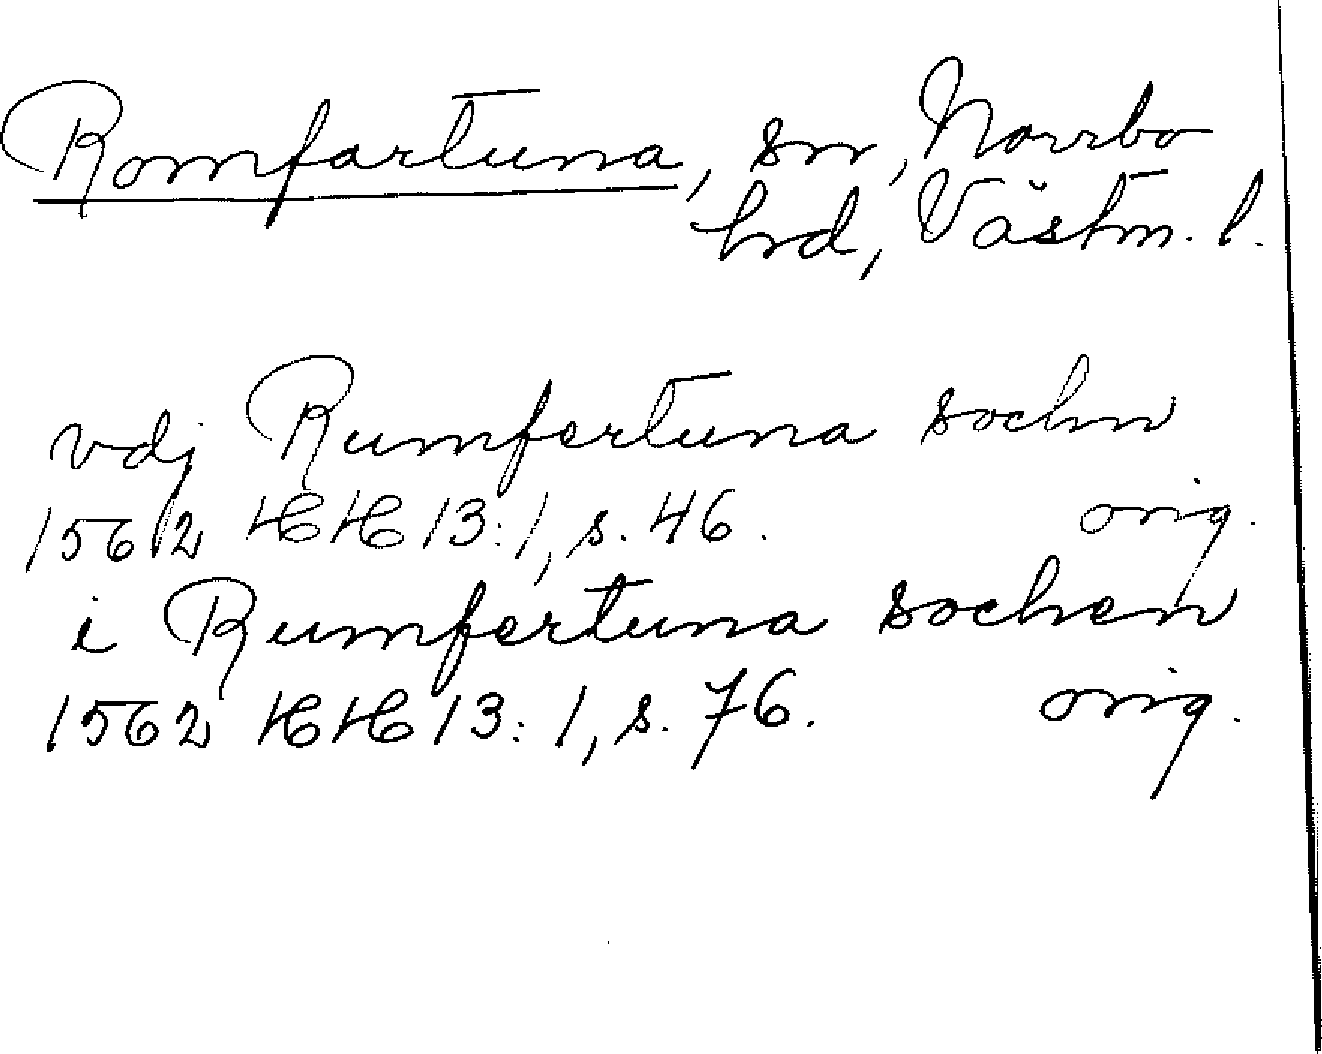 Romfartuna, sn, Norrbo
hrd, Västm. l.
vdj Rumfertuna sochn
1562 HH 13:1, s. 46. orig.
i Rumfertuna sochen
1562 HH 13:1, s. 76. orig.